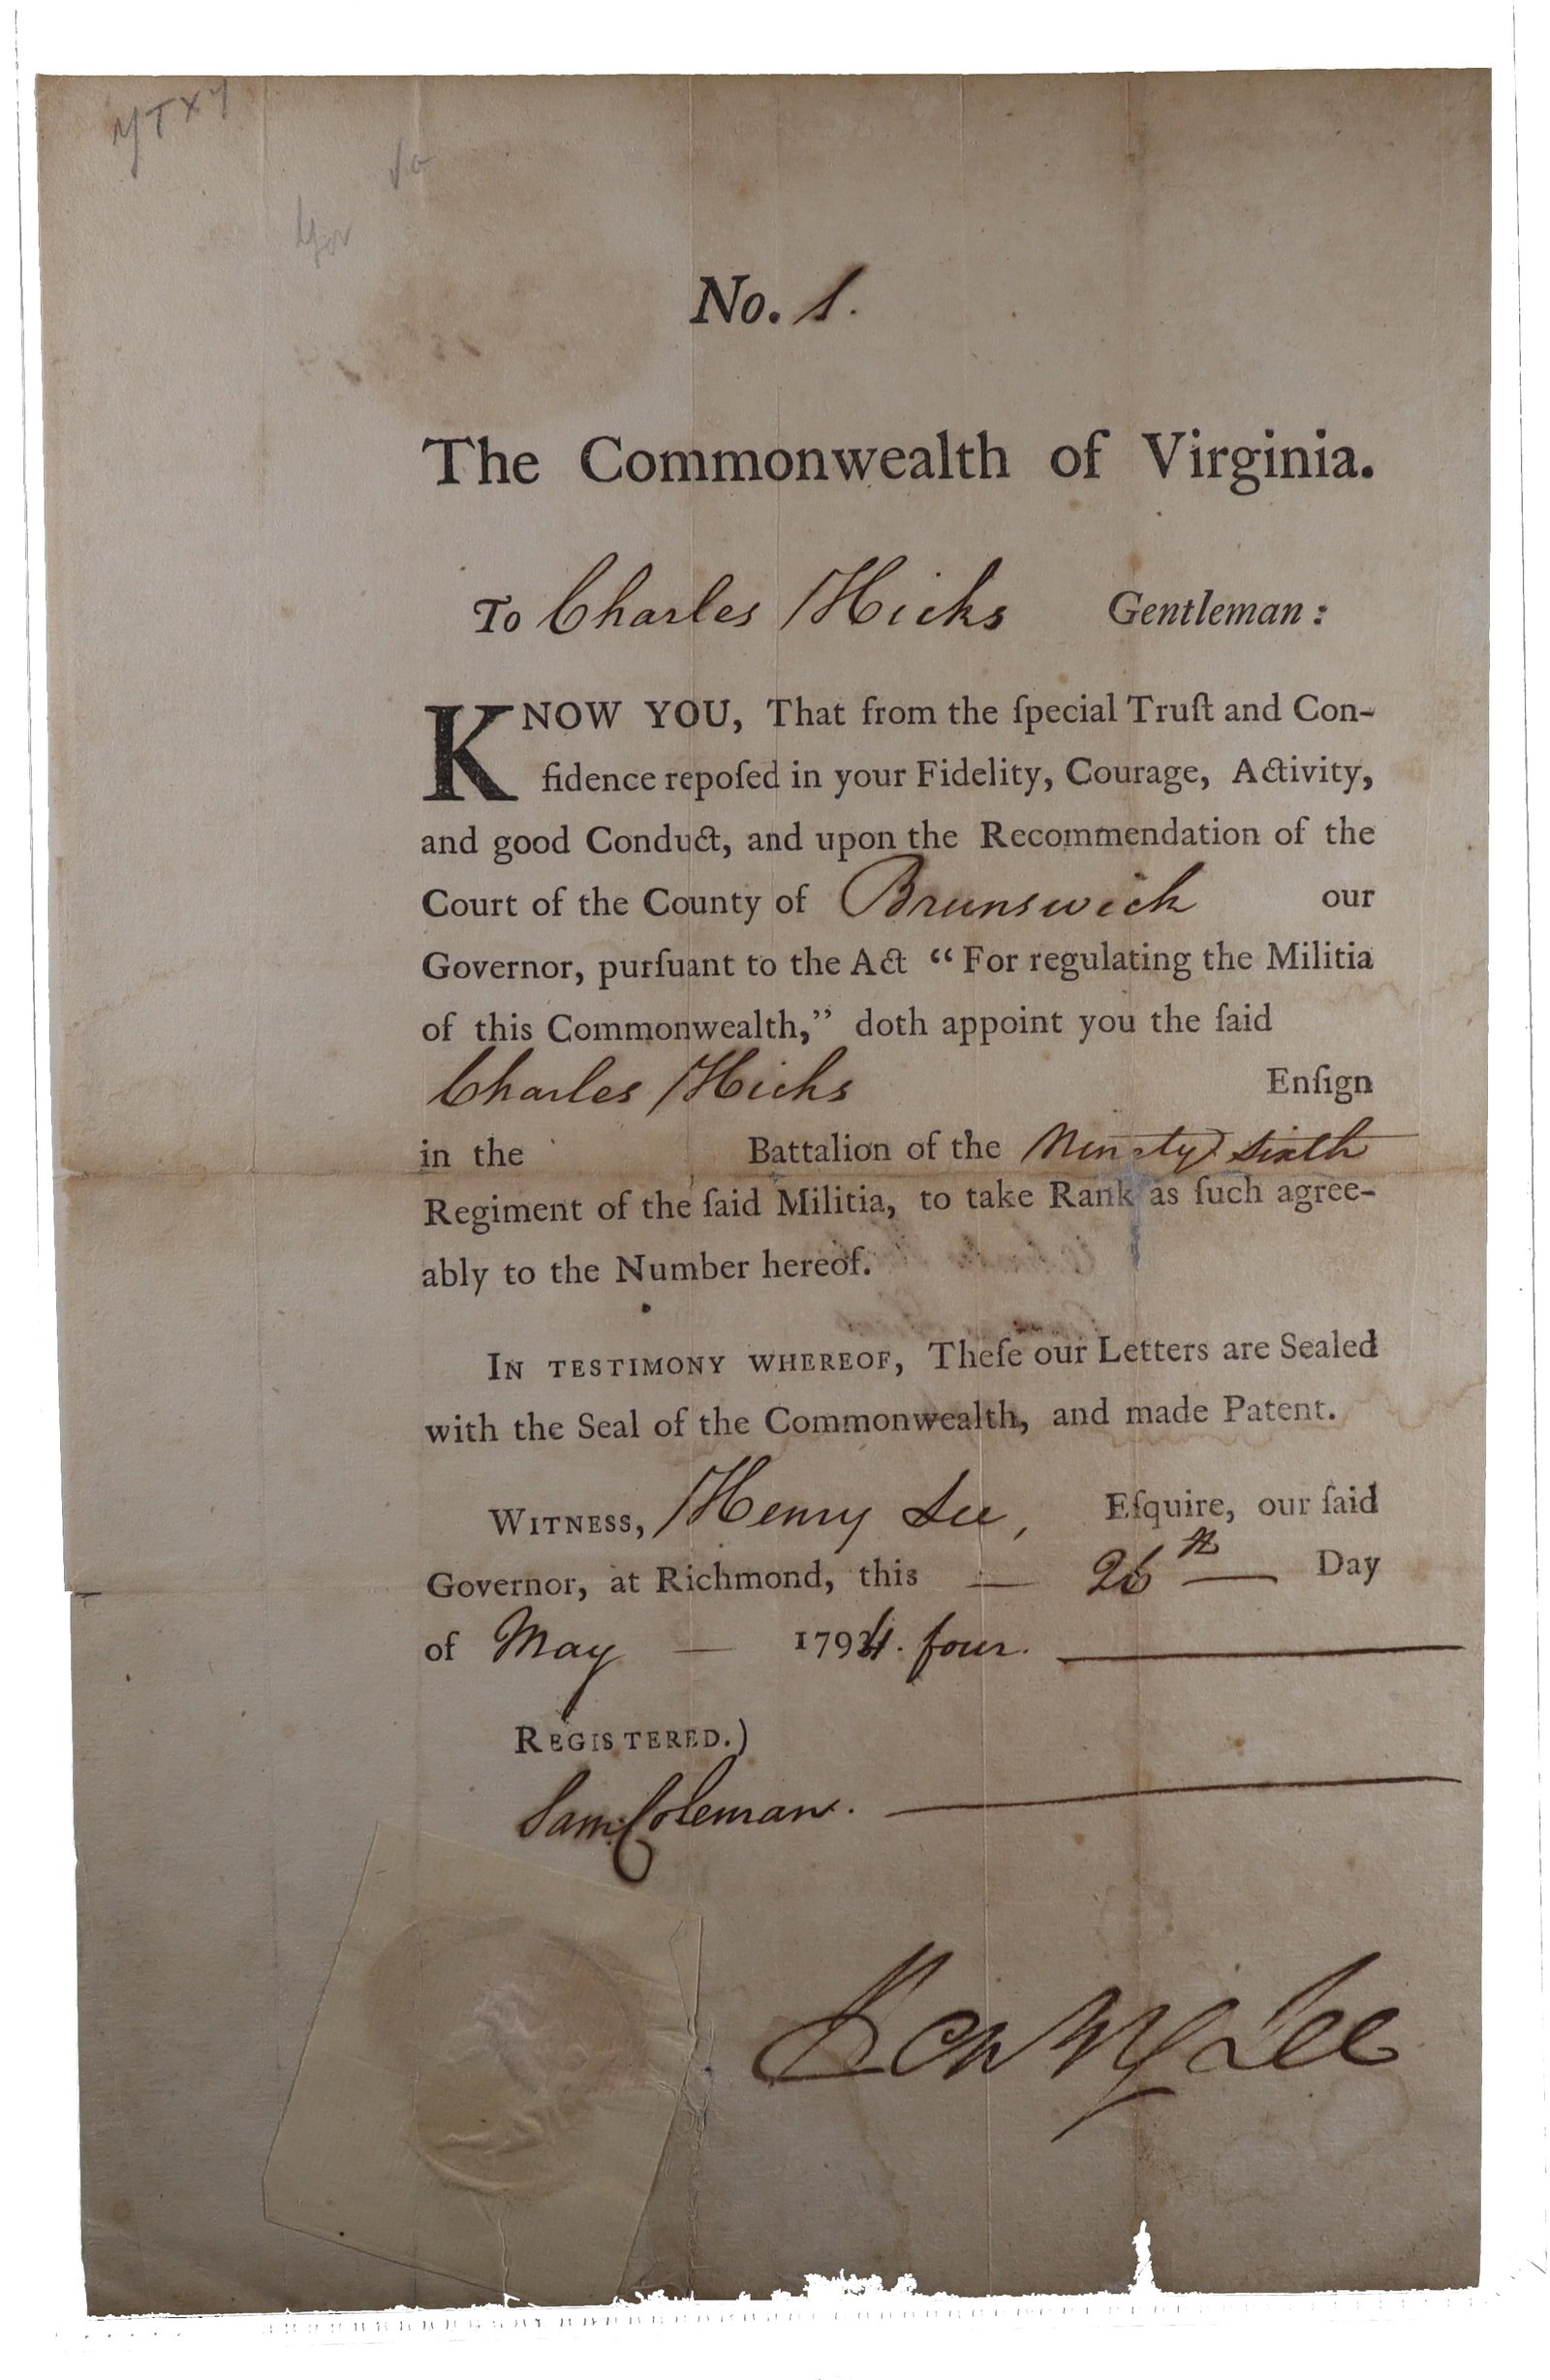 No. 1.
The Commonwealth of Virginia.
To Charles Hicks Gentleman :
KNOW YOU, That from the ſpecial Truſt and Con-
fidence repoſed in your Fidelity, Courage, Activity,
and good Conduct, and upon the Recommendation of the
Court of the County of Brunswick our
Governor, purſuant to the Act “ For regulating the Militia
of this Commonwealth,” doth appoint you the ſaid
Charles Hicks Enſign
in the Battalion of the Ninety Sixth
Regiment of the ſaid Militia, to take Rank as ſuch agree-
ably to the Number hereof.
IN TESTIMONY WHEREOF, Theſe our Letters are Sealed
with the Seal of the Commonwealth, and made Patent.
WITNESS, Henry Lee, Eſquire, our ſaid
Governor, at Richmond, this — 26th — Day
of May — 1794. four.
REGISTERED.)
Sam: Coleman.
Henry Lee